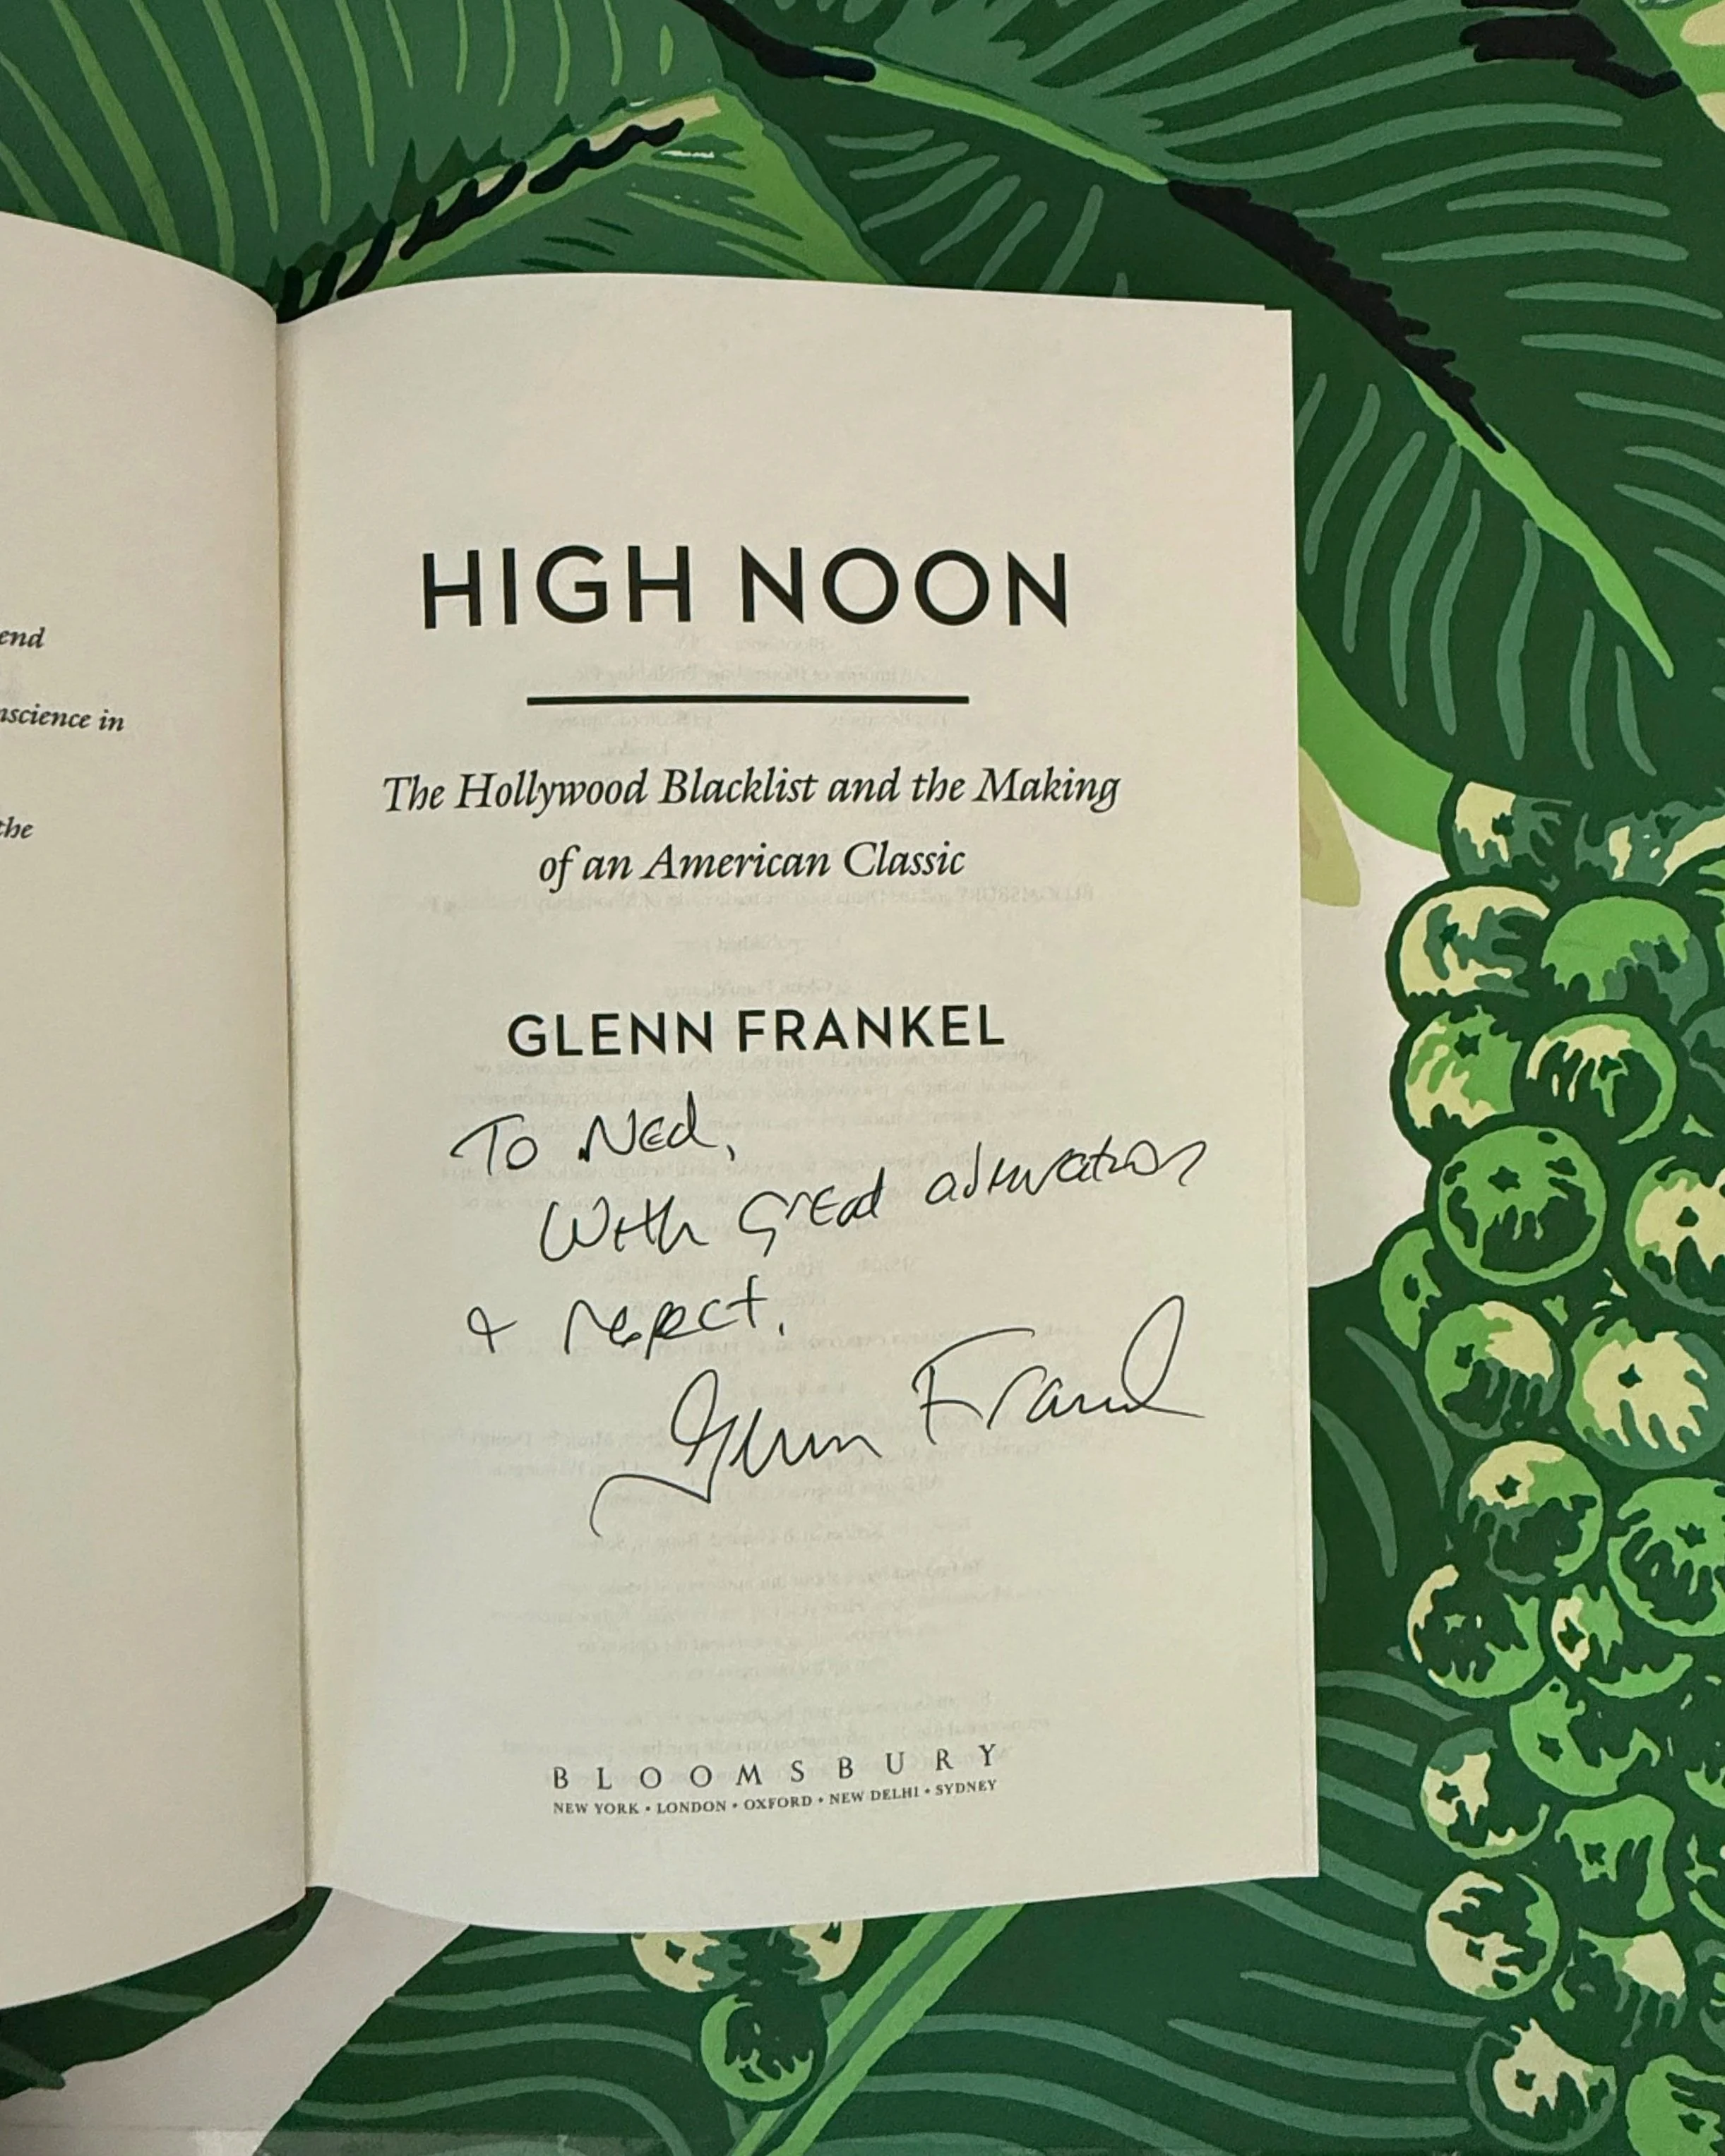 end
nscience in
the
HIGH NOON
The Hollywood Blacklist and the Making
of an American Classic
GLENN FRANKEL
To Ned,
With great admiration
& respect,
Glenn Frankel
BLOOMSBURY
NEW YORK • LONDON • OXFORD • NEW DELHI • SYDNEY